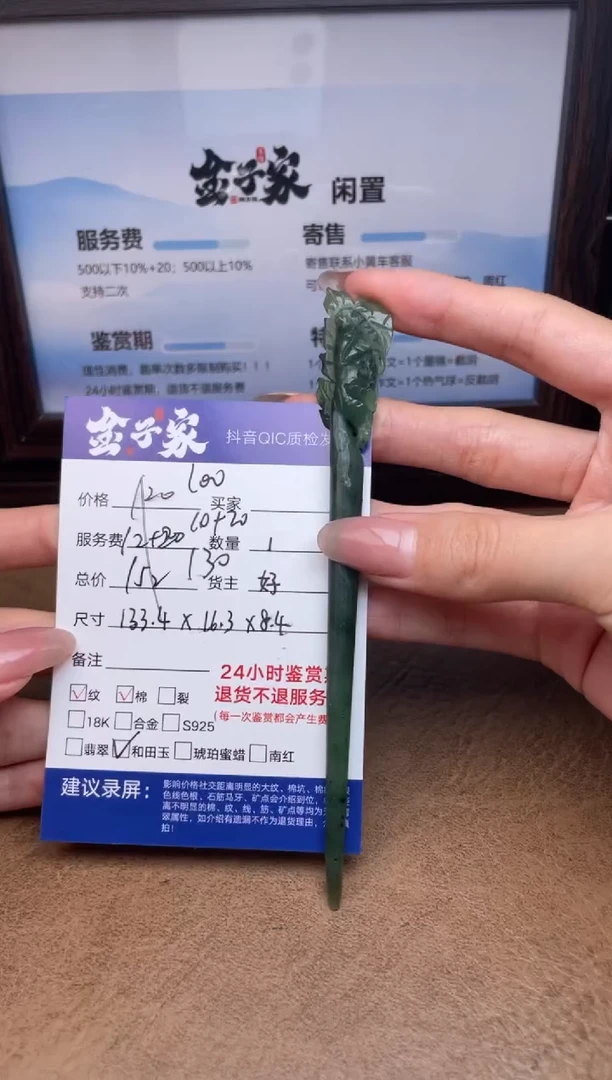 金子家 闲置
服务费
500以下10%+20；500以上10%
支持二次
寄售
寄售联系小黄车客服
鉴赏期
理性消费，跑单次数多限制购买！！！
24小时鉴赏期，退货不退服务费
金子家 抖音QIC质检发
价格 120 100 买家
服务费 12+20 10+20 数量 1
总价 152 130 货主 好
尺寸 133.4 x 16.3 x 8.4
备注
24小时鉴赏期
退货不退服务
(每一次鉴赏都会产生费
纹 棉 裂
18K 合金 S925
翡翠 和田玉 琥珀蜜蜡 南红
建议录屏：
影响价格社交距离明显的大纹、棉坑、棉
色线色根、石筋马牙、矿点会介绍到位，
离不明显的棉、纹、线、筋、矿点等均为
翠属性，如介绍有遗漏不作为退货理由，
拍！